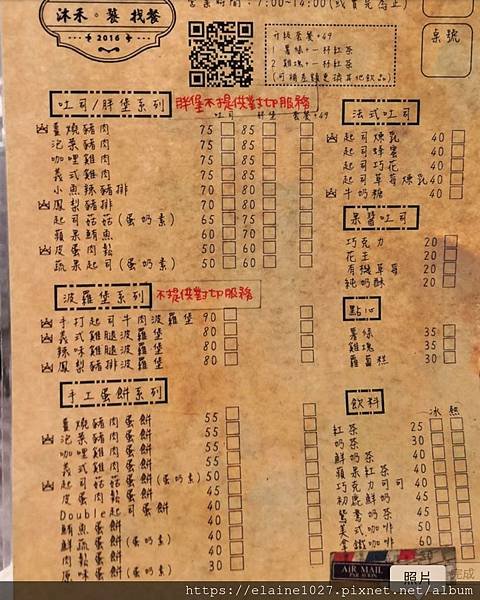 沐禾。餐 找餐
2016
營業時間：7:00~14:00(或賣完為止)
桌號
升級套餐+49
1 薯條+一杯紅茶
2 雞塊+一杯紅茶
吐司/胖堡系列
胖堡不提供對切服務
吐司 胖堡 套餐+49
薑燒豬肉 75 85
泡菜豬肉 75 85
咖哩雞肉 75 85
義式雞肉 75 85
小魚辣豬排 70 80
鳳梨豬排 70 80
起司菇菇(蛋奶素) 65 75
蘋果鮪魚 60 70
皮蛋肉鬆 50 60
蔬果起司(蛋奶素) 50 60
波蘿堡系列
不提供對切服務
手打起司牛肉波蘿堡 90
義式雞腿波蘿堡 80
辣味雞腿波蘿堡 80
鳳梨豬排波蘿堡 80
手工蛋餅系列
薑燒豬肉蛋餅 55
泡菜豬肉蛋餅 55
咖哩雞肉蛋餅 55
義式雞肉蛋餅 55
起司菇菇蛋餅(蛋奶素) 50
皮蛋肉鬆蛋餅 45
Double起司蛋餅 40
鮪魚蛋餅 45
鮮蔬蛋餅(蛋奶素) 40
肉鬆蛋餅 40
原味蛋餅(蛋奶素) 30
法式吐司
起司煉乳 40
起司蜂蜜 40
起司巧花 40
起司草莓煉乳 40
牛奶糖 40
果醬吐司
巧克力 20
花生 20
有機草莓 20
純奶酥 20
點心
薯條 35
雞塊 35
蘿蔔糕 30
飲料
冰 熱
紅茶 25
奶茶 30
鮮奶茶 40
蘋果紅茶 40
巧克力可可 40
初鹿鮮奶 45
鴛鴦奶茶 45
美式咖啡 50
拿鐵咖啡 60
AIR MAIL
PAR AVION
照片
完成
https://elaine1027.pixnet.net/album